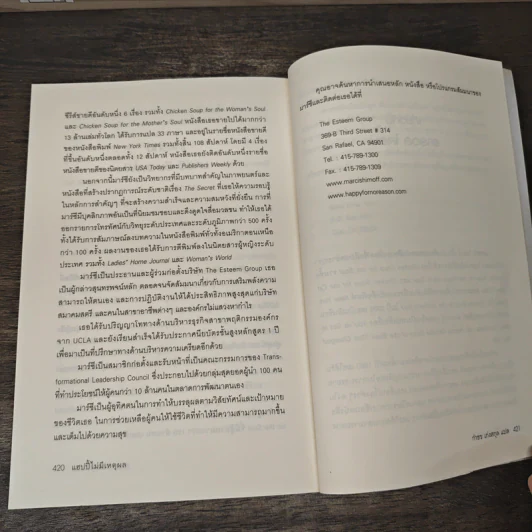 ซีรีส์ขายดีอันดับหนึ่ง 6 เรื่อง รวมทั้ง Chicken Soup for the Woman's Soul
และ Chicken Soup for the Mother's Soul หนังสือเธอขายไปได้มากกว่า
13 ล้านเล่มทั่วโลก ได้รับการแปล 33 ภาษา และอยู่ในรายชื่อหนังสือขายดี
ของหนังสือพิมพ์ New York Times รวมทั้งสิ้น 108 สัปดาห์ โดยมี 4 เรื่อง
ที่ขึ้นอันดับหนึ่งตลอดทั้ง 12 สัปดาห์ หนังสือเธอยังติดอันดับหนึ่งรายชื่อ
หนังสือขายดีของนิตยสาร USA Today และ Publishers Weekly ด้วย
นอกจากนี้มาร์ซียังเป็นวิทยากรที่มีบทบาทสำคัญในภาพยนตร์และ
หนังสือที่สร้างปรากฏการณ์ระดับชาติเรื่อง The Secret ที่เธอให้ความรอบรู้
ในหลักการสำคัญๆ ที่จะสร้างความสำเร็จและความสมหวังที่ยั่งยืน การที่
มาร์ซีมีบุคลิกภาพอันเป็นที่นิยมชมชอบและดึงดูดใจสื่อมวลชน ทำให้เธอได้
ออกรายการโทรทัศน์กับวิทยุระดับประเทศและระดับภูมิภาคกว่า 500 ครั้ง
ทั้งได้รับการสัมภาษณ์ลงบทความในหนังสือพิมพ์ทั่วทั้งอเมริกาตอนเหนือ
กว่า 100 ครั้ง ผลงานของเธอได้รับการตีพิมพ์ลงในนิตยสารผู้หญิงระดับ
ประเทศ รวมทั้ง Ladies' Home Journal และ Woman's World
มาร์ซีเป็นประธานและผู้ร่วมก่อตั้งบริษัท The Esteem Group เธอ
เป็นผู้กล่าวสุนทรพจน์หลัก ตลอดจนจัดสัมมนาเกี่ยวกับการเสริมพลังความ
สามารถให้ตนเอง และการปฏิบัติงานให้ได้ประสิทธิภาพสูงสุดแก่บริษัท
สมาคมสตรี และคนในสาขาอาชีพต่างๆ และองค์กรไม่แสวงหากำไร
เธอได้รับปริญญาโททางด้านบริหารธุรกิจสาขาพฤติกรรมองค์กร
จาก UCLA และยังเรียนสำเร็จได้รับประกาศนียบัตรชั้นสูงหลักสูตร 1 ปี
เพื่อมาเป็นที่ปรึกษาทางด้านบริหารความเครียดอีกด้วย
มาร์ซีเป็นสมาชิกก่อตั้งและรับหน้าที่เป็นคณะกรรมการของ Trans-
formational Leadership Council ซึ่งประกอบไปด้วยกลุ่มสุดยอดผู้นำ 100 คน
ที่ทำประโยชน์ให้ผู้คนกว่า 10 ล้านคนในตลาดการพัฒนาตนเอง
มาร์ซีเป็นผู้อุทิศตนในการทำให้บรรลุผลตามวิสัยทัศน์และเป้าหมาย
ของชีวิตเธอ ในการช่วยเหลือผู้คนให้ใช้ชีวิตที่ทำให้มีความสามารถมากขึ้น
และเต็มไปด้วยความสุข
420 แฮปปี้ไม่มีเหตุผล
คุณอาจค้นหาการนำเสนอหลัก หนังสือ หรือโปรแกรมสัมมนาของ
มาร์ซีและติดต่อเธอได้ที่
The Esteem Group
369-B Third Street # 314
San Rafael, CA 94901
Tel. : 415-789-1300
Fax. : 415-789-1309
www.marcishimoff.com
www.happyfornoreason.com
421